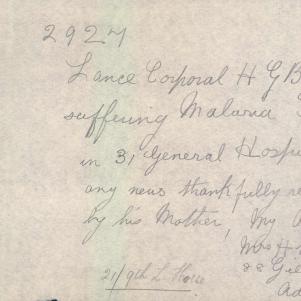 2924
Lance Corporal H G B
suffering Malaria
in 31 General Hosp
any news thankfully re
by his Mother, my
Mrs H
88 Gil
Ad
2/9th L. Horse